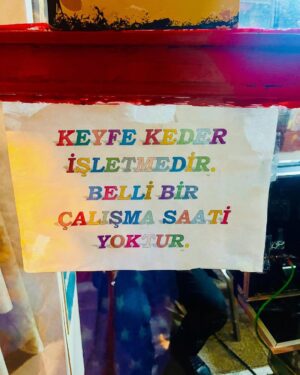 KEYFE KEDER
İŞLETMEDİR.
BELLİ BİR
ÇALIŞMA SAATİ
YOKTUR.